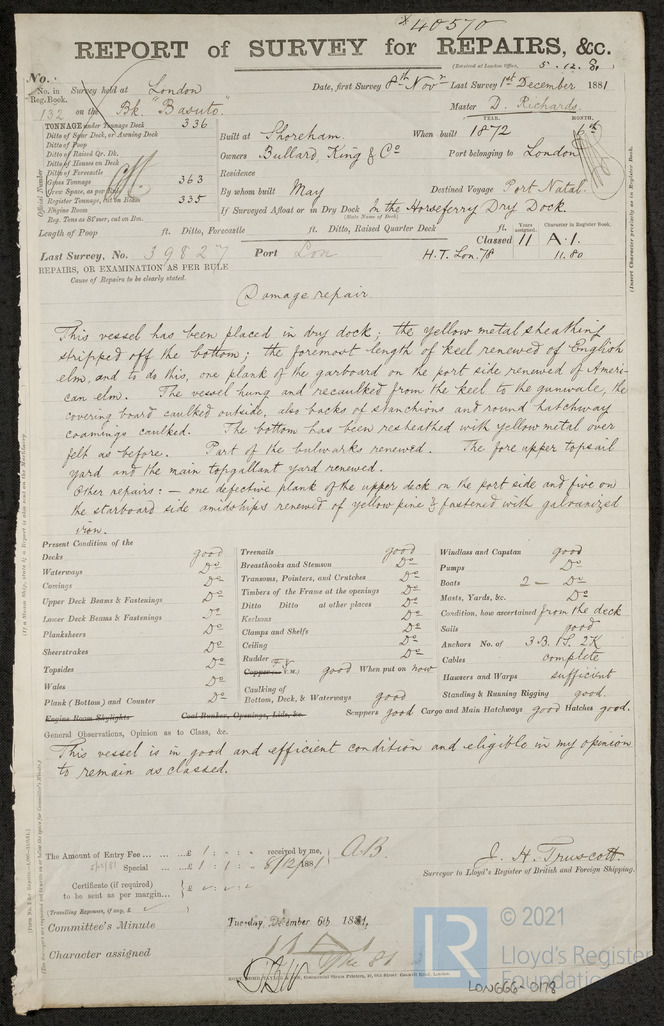 * 40570
REPORT of SURVEY for REPAIRS, &c.
(Received at London Office, 5.12.81
No. in Reg. Book. Survey held at London Date, first Survey 8th Novr Last Survey 1st December 1881
132 on the Bk "Basuto." Master D. Richards.
TONNAGE under Tonnage Deck 336
Ditto of Spar Deck, or Awning Deck
Ditto of Poop
Ditto of Raised Qr. Dk.
Ditto of Houses on Deck
Ditto of Forecastle
Gross Tonnage 363
Crew Space, as per
Register Tonnage, cut on Beam 335
Engine Room
Reg. Tons as St'mer, cut on Bm.
Official Number
Built at Shoreham. When built YEAR. 1872 MONTH. 6th
Owners Bullard, King & Co Port belonging to London
Residence
By whom built May Destined Voyage Port Natal.
If Surveyed Afloat or in Dry Dock In the Horseferry Dry Dock.
(State Name of Dock)
Length of Poop ft. Ditto, Forecastle ft. Ditto, Raised Quarter Deck ft.
Years assigned. Character in Register Book.
Classed 11 A.1.
Last Survey, No. 39827 Port Lon H.T. Lon. 78 11.80
REPAIRS, OR EXAMINATION AS PER RULE
Cause of Repairs to be clearly stated.
Damage repair
This vessel has been placed in dry dock; the yellow metal sheathing
stripped off the bottom; the foremost length of keel renewed of English
elm, and to do this, one plank of the garboard on the port side renewed of Ameri-
can elm. The vessel hung and recaulked from the keel to the gunwale, the
covering board caulked outside, also backs of stanchions and round hatchway
coamings caulked. The bottom has been resheathed with yellow metal over
felt as before. Part of the bulwarks renewed. The fore upper topsail
yard and the main topgallant yard renewed.
Other repairs: — one defective plank of the upper deck on the port side and five on
the starboard side amidships renewed of yellow pine & fastened with galvanized
iron.
Present Condition of the
Decks good
Waterways Do
Comings Do
Upper Deck Beams & Fastenings Do
Lower Deck Beams & Fastenings Do
Planksheers Do
Sheerstrakes Do
Topsides Do
Wales Do
Plank (Bottom) and Counter Do
Engine Room Skylights Coal Bunker, Openings, Lids, &c.
Treenails good
Breasthooks and Stemson Do
Transoms, Pointers, and Crutches Do
Timbers of the Frame at the openings Do
Ditto Ditto at other places Do
Keelsons Do
Clamps and Shelfs Do
Ceiling Do
Rudder Do
Copper (or Y.M.) good When put on now
Caulking of
Bottom, Deck, & Waterways good
Scuppers good Cargo and Main Hatchways good Hatches good.
Windlass and Capstan good
Pumps Do
Boats 2 — Do
Masts, Yards, &c. Do
Condition, how ascertained from the deck
Sails good
Anchors No. of 3 B. 1 S. 2 K
Cables complete
Hawsers and Warps sufficient
Standing & Running Rigging good.
General Observations, Opinion as to Class, &c.
This vessel is in good and efficient condition and eligible in my opinion
to remain as classed.
The Amount of Entry Fee £ 1 : - : - received by me, A.B.
Special £ 1 : 1 : - 8/12/1881
Certificate (if required) to be sent as per margin £
(Travelling Expenses, if any, £ )
J. H. Truscott.
Surveyor to Lloyd's Register of British and Foreign Shipping.
Committee's Minute Tuesday, December 6th 1881.
Character assigned
LR
© 2021
Lloyd's Register
Foundation
LON666-0178